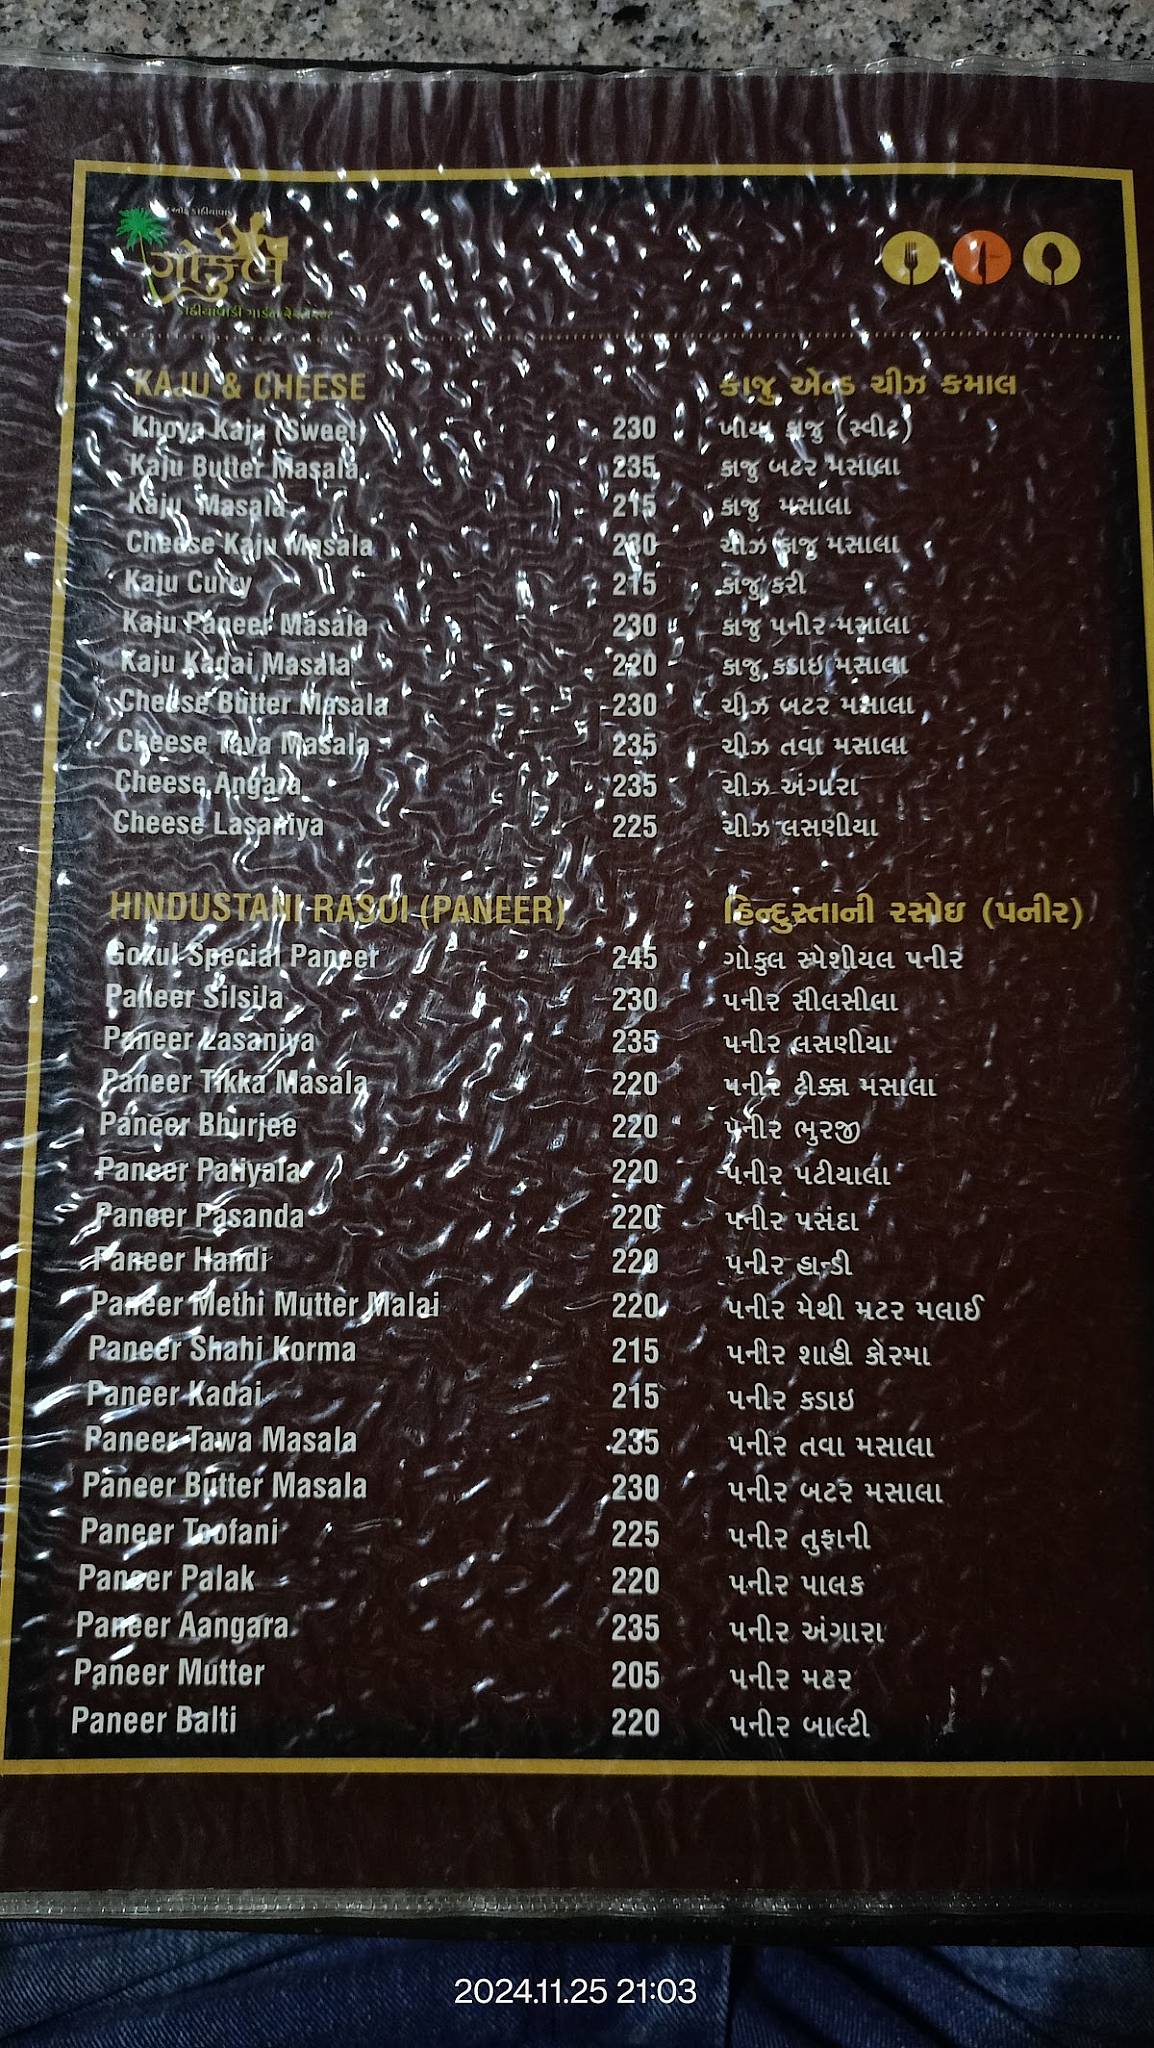 ગોકુલ
કાઠીયાવાડી ગાર્ડન રેસ્ટોરન્ટ
KAJU & CHEESE કાજુ એન્ડ ચીઝ કમાલ
Khoya Kaju (Sweet) 230 ખોયા કાજુ (સ્વીટ)
Kaju Butter Masala 235 કાજુ બટર મસાલા
Kaju Masala 215 કાજુ મસાલા
Cheese Kaju Masala 230 ચીઝ કાજુ મસાલા
Kaju Curry 215 કાજુ કરી
Kaju Paneer Masala 230 કાજુ પનીર મસાલા
Kaju Kadai Masala 220 કાજુ કડાઇ મસાલા
Cheese Butter Masala 230 ચીઝ બટર મસાલા
Cheese Tava Masala 235 ચીઝ તવા મસાલા
Cheese Angara 235 ચીઝ અંગારા
Cheese Lasaniya 225 ચીઝ લસણીયા
HINDUSTANI RASOI (PANEER) હિન્દુસ્તાની રસોઇ (પનીર)
Gokul Special Paneer 245 ગોકુલ સ્પેશીયલ પનીર
Paneer Silsila 230 પનીર સીલસીલા
Paneer Lasaniya 235 પનીર લસણીયા
Paneer Tikka Masala 220 પનીર ટીક્કા મસાલા
Paneer Bhurjee 220 પનીર ભુરજી
Paneer Patiyala 220 પનીર પટીયાલા
Paneer Pasanda 220 પનીર પસંદા
Paneer Handi 220 પનીર હાન્ડી
Paneer Methi Mutter Malai 220 પનીર મેથી મટર મલાઈ
Paneer Shahi Korma 215 પનીર શાહી કોરમા
Paneer Kadai 215 પનીર કડાઇ
Paneer Tawa Masala 235 પનીર તવા મસાલા
Paneer Butter Masala 230 પનીર બટર મસાલા
Paneer Toofani 225 પનીર તુફાની
Paneer Palak 220 પનીર પાલક
Paneer Aangara 235 પનીર અંગારા
Paneer Mutter 205 પનીર મટર
Paneer Balti 220 પનીર બાલ્ટી
2024.11.25 21:03